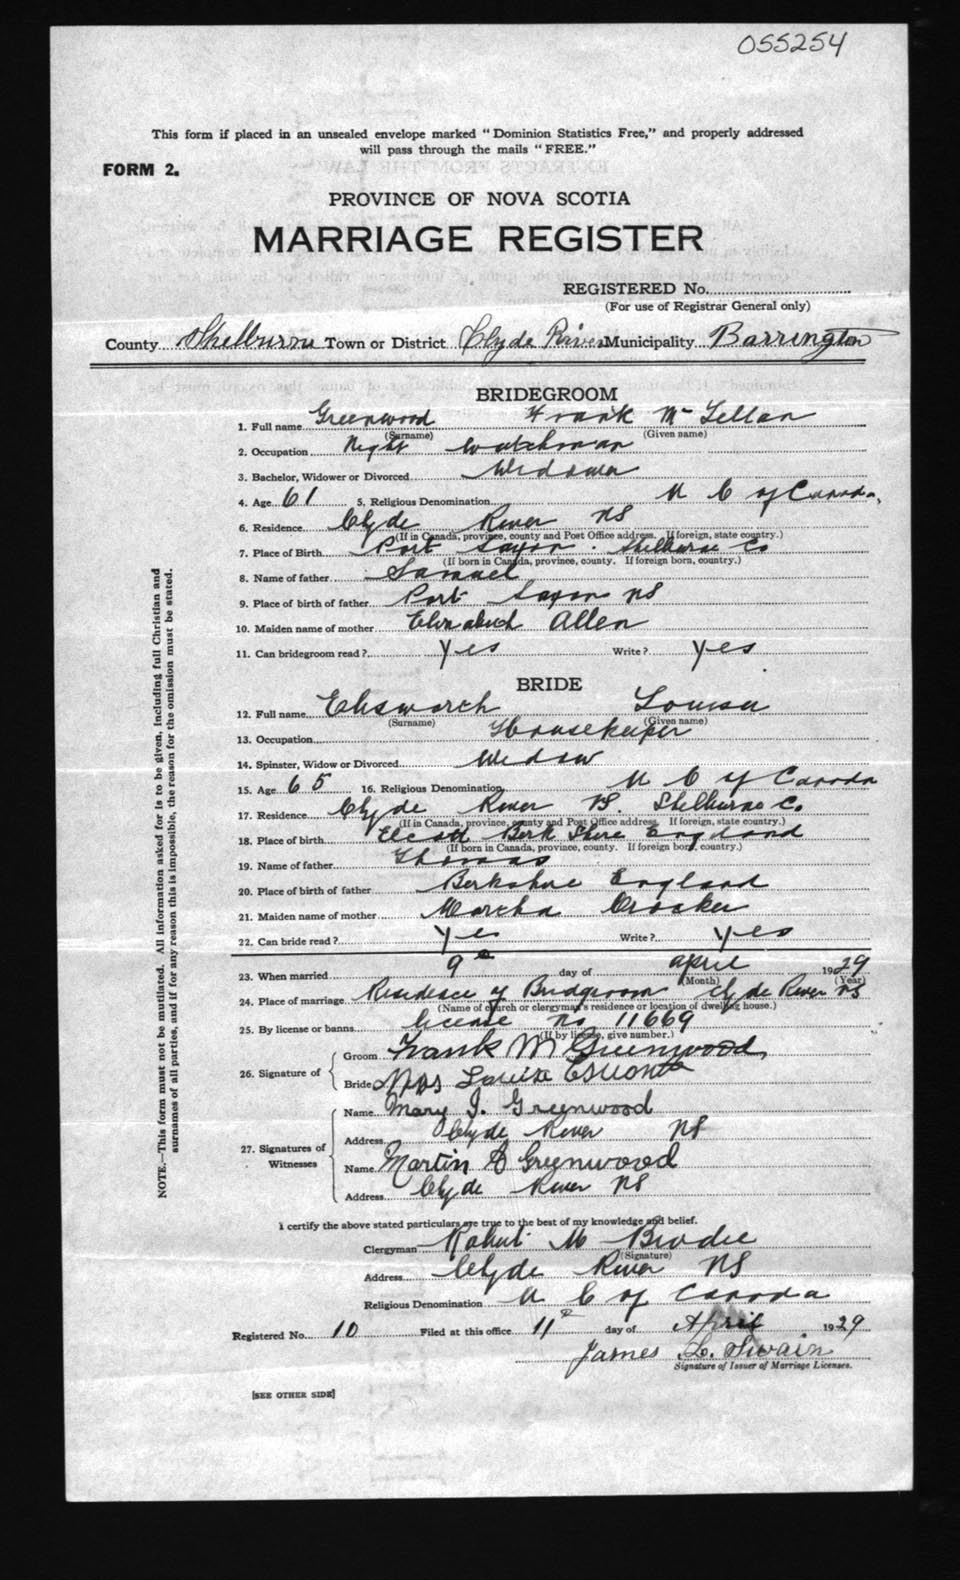 055254
This form if placed in an unsealed envelope marked "Dominion Statistics Free," and properly addressed
will pass through the mails "FREE."
FORM 2.
PROVINCE OF NOVA SCOTIA
MARRIAGE REGISTER
REGISTERED No.
(For use of Registrar General only)
County Shelburne Town or District Clyde River Municipality Barrington
BRIDEGROOM
1. Full name Greenwood Frank McLellan
(Surname) (Given name)
2. Occupation Night Watchman
3. Bachelor, Widower or Divorced Widower
4. Age 61 5. Religious Denomination U C of Canada,
6. Residence Clyde River NS
(If in Canada, province, county and Post Office address. If foreign, state country.)
7. Place of Birth Port Saxon. Shelburne Co
(If born in Canada, province, county. If foreign born, country.)
8. Name of father Samuel
9. Place of birth of father Port Saxon NS
10. Maiden name of mother Elizabeth Allen
11. Can bridegroom read? Yes Write? Yes
BRIDE
12. Full name Elisworth Louisa
(Surname) (Given name)
13. Occupation Housekeeper
14. Spinster, Widow or Divorced Widow
15. Age 65 16. Religious Denomination U C of Canada
17. Residence Clyde River NS. Shelburne Co.
(If in Canada, province, county and Post Office address. If foreign, state country.)
18. Place of birth Berk Shire England
(If born in Canada, province, county. If foreign born, country.)
19. Name of father Thomas
20. Place of birth of father Berkshire England
21. Maiden name of mother Martha Crocker
22. Can bride read? Yes Write? Yes
23. When married 9th day of April 1929
(Month) (Year)
24. Place of marriage Residence of Bridegroom Clyde River NS
(Name of church or clergyman's residence or location of dwelling house.)
25. By license or banns License No 11669
(If by license, give number.)
26. Signature of
Groom Frank M Greenwood
Bride Mrs Louise
27. Signatures of Witnesses
Name Mary J. Greenwood
Address Clyde River NS
Name Martin Greenwood
Address Clyde River NS
I certify the above stated particulars are true to the best of my knowledge and belief.
Clergyman Robert M Brodie
(Signature)
Address Clyde River NS
Religious Denomination U C of Canada
Registered No. 10 Filed at this office 11th day of April 1929
James L. Swain
Signature of Issuer of Marriage Licenses.
[SEE OTHER SIDE]
NOTE.—This form must not be mutilated. All information asked for is to be given, including full Christian and
surnames of all parties, and if for any reason this is impossible, the reason for the omission must be stated.